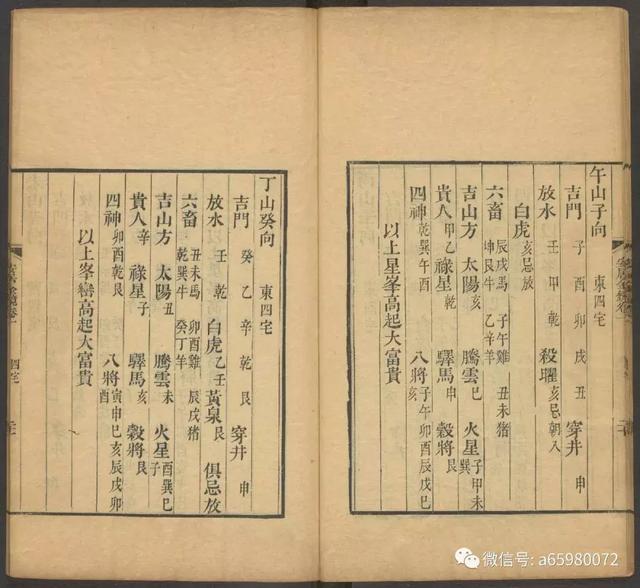 午山子向 東四宅
吉門 子酉卯戌丑 穿井 申
放水 壬甲乾 殺曜 亥忌朝入
白虎 亥忌放
六畜 辰戌馬 子午雞 丑未猪 坤艮牛 乙辛羊
吉山方 太陽亥 騰雲巳 火星子甲未巽
貴人甲乙 祿星 驛馬申 穀將艮
四神乾巽午酉 八將子午卯酉辰戌巳亥
以上星峯高起大富貴
丁山癸向 東四宅
吉門 癸乙辛乾艮 穿井 申
放水 壬乾 白虎乙壬 黃泉艮 俱忌放
六畜 丑未馬 卯酉雞 辰戌猪 乾巽牛 癸丁羊
吉山方 太陽丑 騰雲未 火星酉巽巳子
貴人辛 祿星子 驛馬亥 穀將艮
四神卯酉乾艮 八將寅申巳亥辰戌卯酉
以上峯巒高起大富貴
四宅
微信号: a65980072